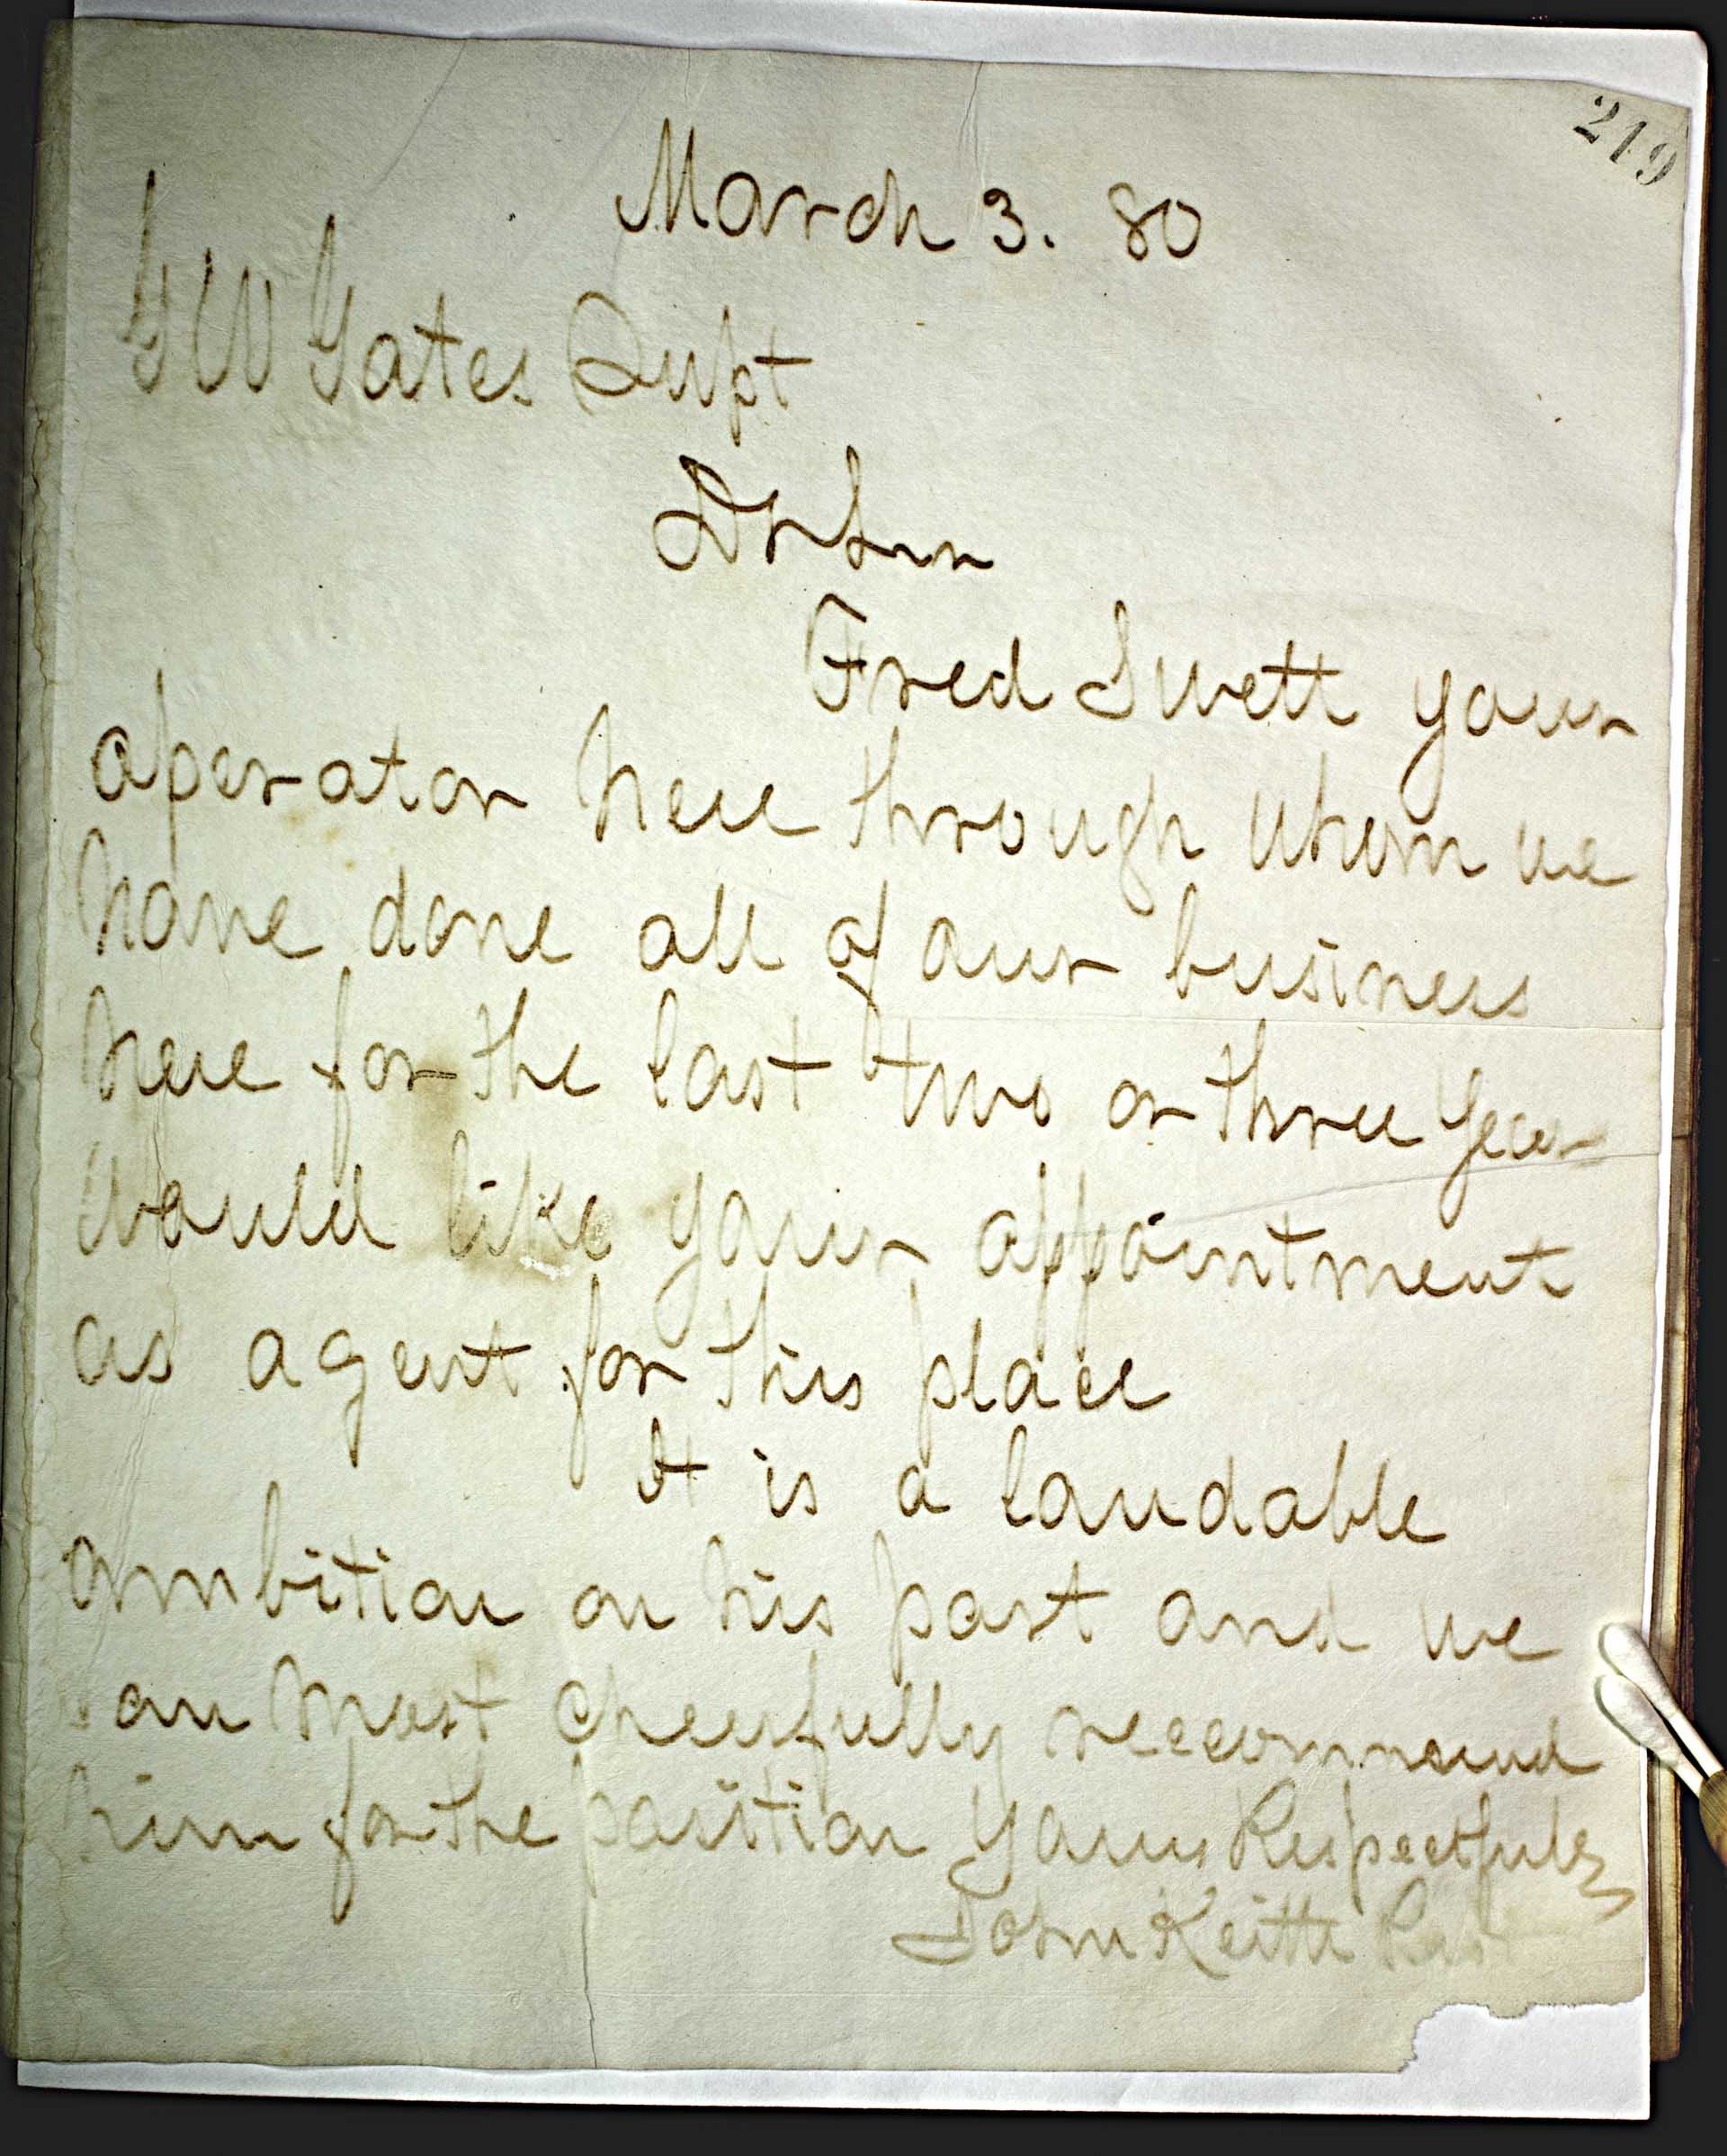 219
March 3. 80
G W Gates Supt
Dr Sir
Fred Swett your
operator here through whom we
have done all of our business
here for the last two or three year
would like your appointment
as agent for this place
It is a laudable
ambition on his part and we
can most cheerfully reccommend
him for the position Yours Respectfully
John Keith